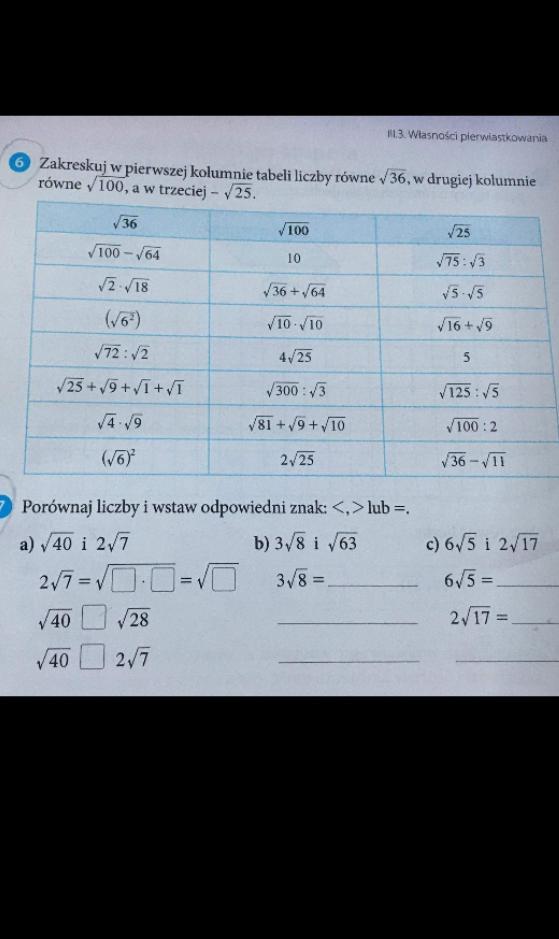 III.3. Własności pierwiastkowania
6 Zakreskuj w pierwszej kolumnie tabeli liczby równe √36, w drugiej kolumnie
równe √100, a w trzeciej – √25.
√36 √100 √25
√100 – √64 10 √75 : √3
√2 · √18 √36 + √64 √5 · √5
(√6²) √10 · √10 √16 + √9
√72 : √2 4√25 5
√25 + √9 + √1 + √1 √300 : √3 √125 : √5
√4 · √9 √81 + √9 + √10 √100 : 2
(√6)² 2√25 √36 – √11
7 Porównaj liczby i wstaw odpowiedni znak: <, > lub =.
a) √40 i 2√7 b) 3√8 i √63 c) 6√5 i 2√17
2√7 = √□ · □ = √□ 3√8 = ________ 6√5 = ________
√40 □ √28 ________ 2√17 = ________
√40 □ 2√7 ________ ________